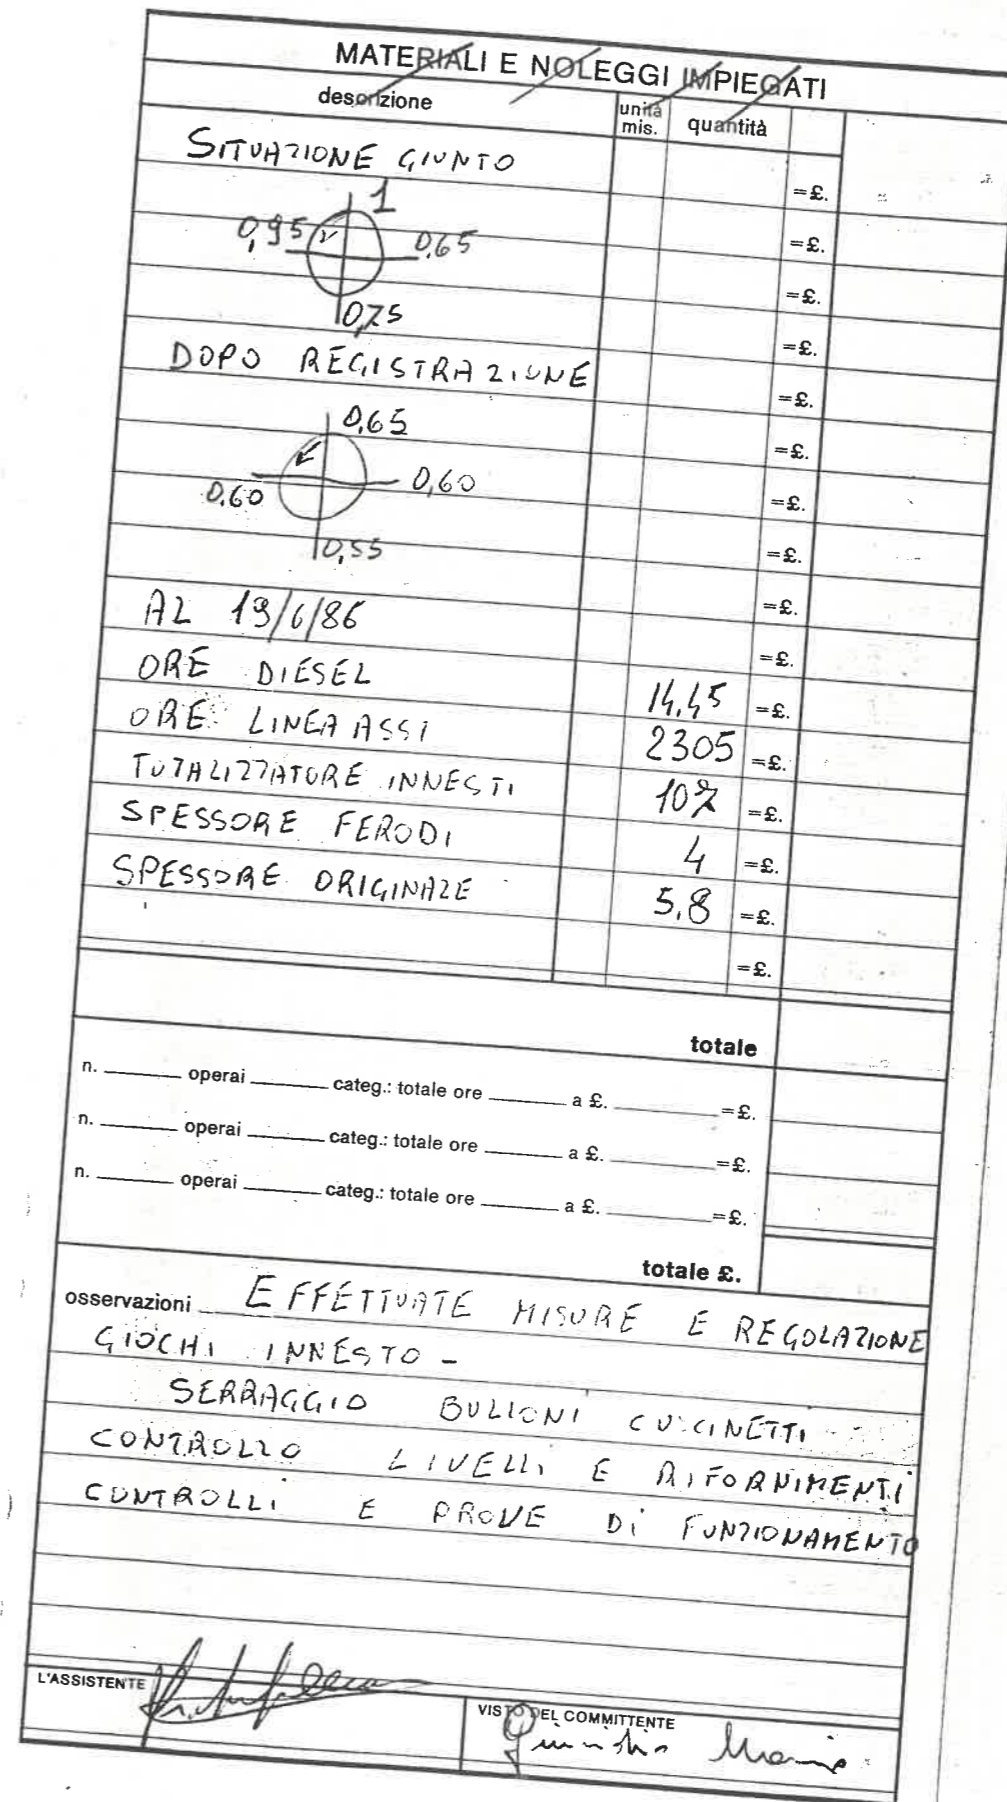 MATERIALI E NOLEGGI IMPIEGATI
descrizione unità mis. quantità
SITUAZIONE GIUNTO =£.
1
0,95 0,65 =£.
=£.
0,75 =£.
DOPO REGISTRAZIONE =£.
0,65 =£.
0,60 0,60 =£.
0,55 =£.
=£.
AL 19/6/86 =£.
ORE DIESEL 14,45 =£.
ORE LINEA ASSI 2305 =£.
TOTALIZZATORE INNESTI =£.
SPESSORE FERODI 4 =£.
SPESSORE ORIGINALE 5,8 =£.
=£.
totale
n. operai categ.: totale ore a £. =£.
n. operai categ.: totale ore a £. =£.
n. operai categ.: totale ore a £. =£.
totale £.
osservazioni EFFETTUATE MISURE E REGOLAZIONE
GIOCHI INNESTO -
SERRAGGIO BULLONI CUSCINETTI
CONTROLLO LIVELLI E RIFORNIMENTI
CONTROLLI E PROVE DI FUNZIONAMENTO
L'ASSISTENTE
VISTO DEL COMMITTENTE